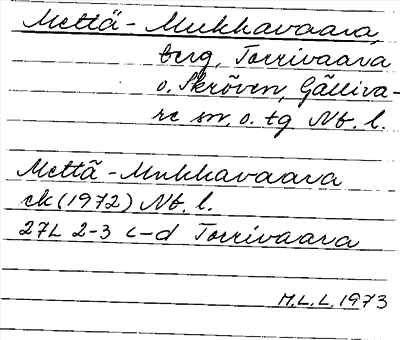 Mettä-Mukkavaara,
berg, Torrivaara
o. Skröven, Gälliva-
re sn. o. tg Nb. l.
Mettä-Mukkavaara
ek (1972) Nb. l.
27L 2-3 c-d Torrivaara
M.L.L. 1973